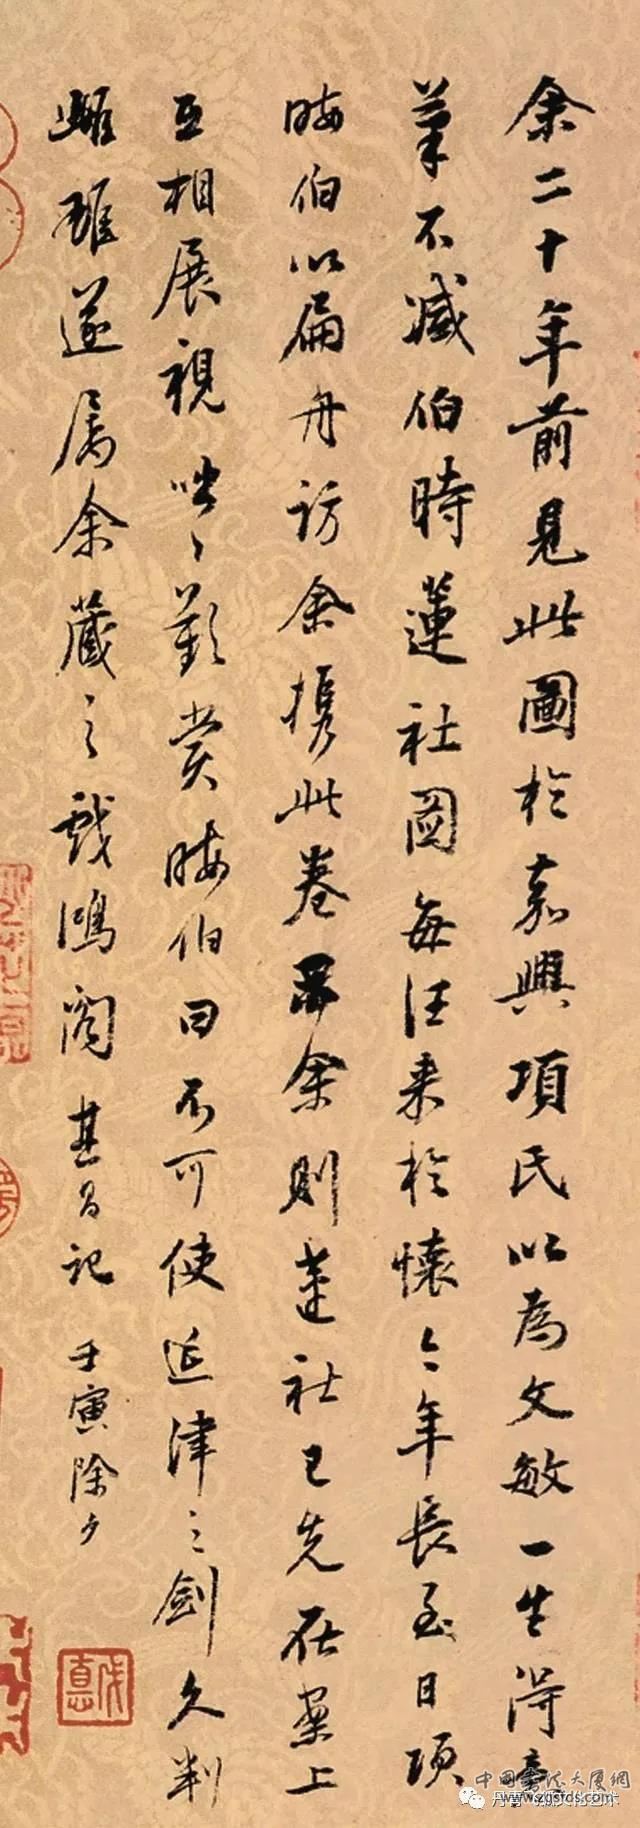 余二十年前見此圖於嘉興項氏以為文敏一生得意
筆不減伯時蓮社圖每往来於懷今年長至日項
晦伯以扁舟訪余携此卷示余則蓮社已先在案上
互相展視咄〻歎賞晦伯曰不可使延津之剑久判
雌雄遂属余藏之戲鴻閣 其昌記 壬寅除夕
中國書法大厦網
www.zgsfds.com